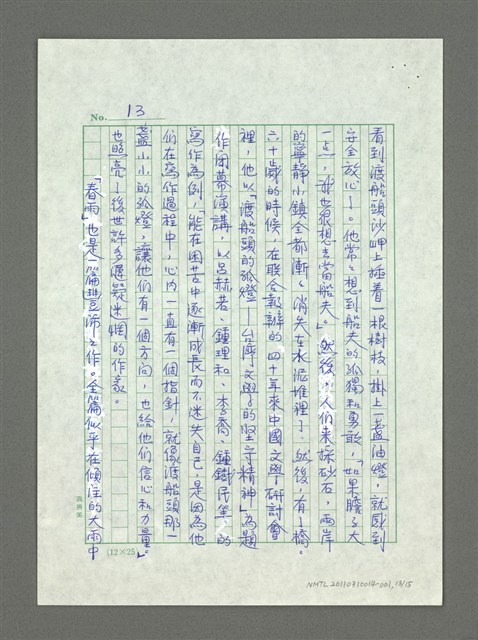 No. 13
看到渡船頭沙岬上插着一根樹枝，掛上一盞油燈，就感到
安全放心了。他常常想到船夫的孤獨和勇敢，「如果膽子大
一点，我也很想去當船夫」。然後，人們来採砂石，兩岸
的寧静小鎮全都漸漸消失在水泥堆裡了，然後有了橋。
六十歲的時候，在联合報辦的四十年來中國文學研討會
裡，他以「渡船頭的孤燈——台灣文學的堅守精神」為題
作閉幕演講，以呂赫若、鍾理和、李喬、鍾鐵民等人的
寫作為例，能在困苦中逐漸成長而不迷失自己，是因為他
們在寫作過程中，心內一直有一個指針，就像渡船頭那一
盞小小的孤燈，讓他們有一個方向，也給他們信心和力量。」
也照亮了後世許多遲疑迷惘的作家。
「春雨」也是一篇豐沛之作。全篇似乎在傾注的大雨中
(12×25)
NMTL 20110310014-001, 13/15